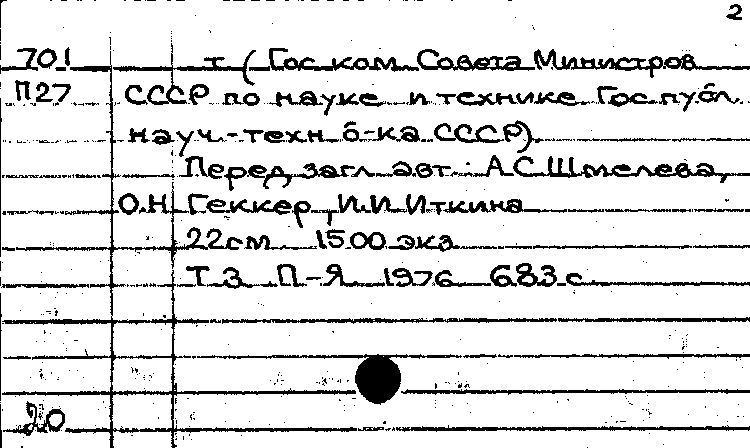 2
701 т (Гос ком Совета Министров
П27 СССР по науке и технике Гос публ
науч.-техн б-ка СССР).
Перед загл авт.: А С Шмелева,
О.Н. Геккер, И.И Иткина
22см 1500 экз
Т 3 П-Я 1976 683 с.
20